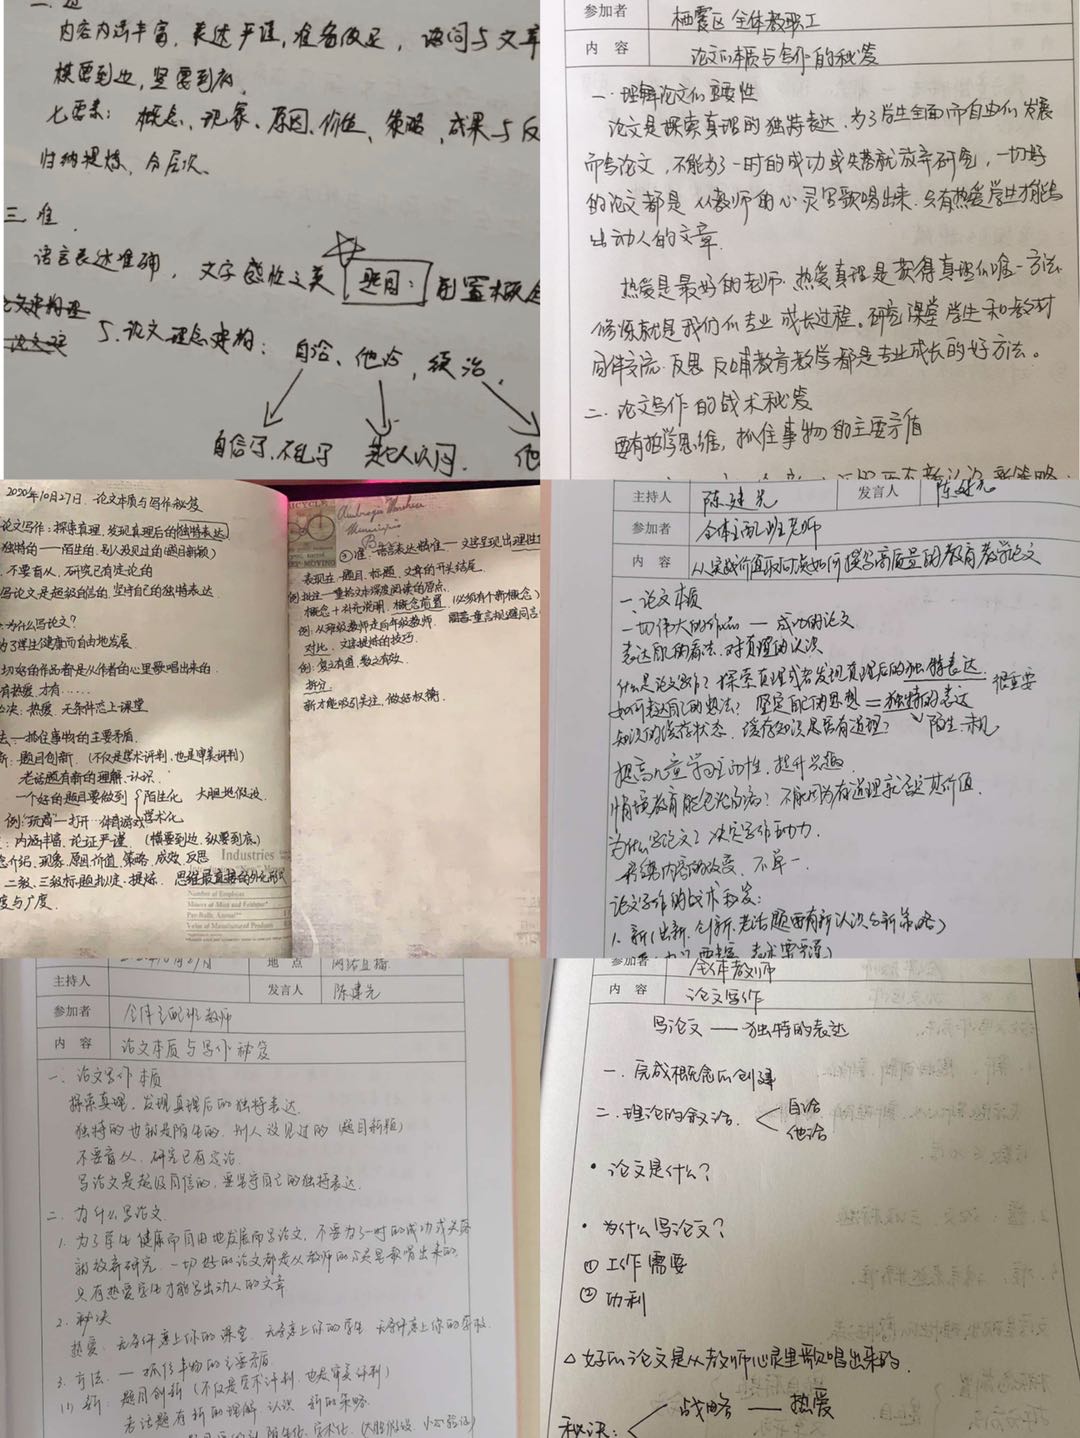 二.道
内容内涵丰富,表达严谨,准备做足,设问与文章
横要到边,竖要到底
七要素:概念、现象、原因、价值、策略、成果与反
归纳提炼、分层次、
三.准
语言表达准确,文字感性之美 题目:前置概念
5.论文理念建构:自洽、他洽,续洽,
自信了,不乱了 其他人认同. 他
参加者 栖霞区全体教职工
内 容 论文的本质与写作的秘笈
一.理解论文的重要性
论文是探索真理的独特表达,为了学生全面而自由的发展
而写论文,不能为了一时的成功或失落就放弃研究,一切好
的论文都是从教师的心灵里歌唱出来.只有热爱学生才能写
出动人的文章.
热爱是最好的老师.热爱真理是获得真理的唯一方法.
修炼就是我们的专业成长过程。研究课堂学生和教材
同伴交流.反思 反哺教育教学都是专业成长的好方法。
二.论文写作的战术秘笈
要有哲学思维,抓住事物的主要矛盾
2020年10月27日.论文本质与写作秘笈
论文写作:探索真理,发现真理后的独特表达
独特的——陌生的,别人没见过的(题目新颖)
不要盲从,研究已有定论的
写论文是超级自信的,坚守自己的独特表达
为什么写论文?
为了学生健康而自由地发展.
切好的作品都是从作者的心里歌唱出来的.
有热爱,才有……
秘决:热爱,无条件恋上课堂
法—抓住事物的主要矛盾.
新:题目创新.(不仅是学术评判,也是审美评判)
老话题有新的理解、认识.
一个好的题目要做到 陌生化 大胆地假设.
学术化
例:"玩商"一打开 体育游戏
:内涵丰富,论证严谨.(横要到边,纵要到底)
念介绍,现象,原因,价值,策略,成效,反思
二级、三级标题拟定、提炼.思维最直接的外化形式
度与广度.
Industries
Number of Employes
Value of Manufactured Products
BICYCLE
③准:语言表达精准——文字呈现出理性
表现在:题目、标题、文章的开头结尾.
例:批注—重拾文本深度阅读的原点.
概念+补充说明,概念前置.(必须有个新概念)
例:从班级教师走向年级教师.
对比,文字提炼的技巧.
例:复之有道,教之有效.
拆分.
新才能吸引关注,做好权衡.
主持人 陈建先 发言人 陈建先
参加者 全体主配班老师
内 容 从实践价值取向谈如何撰写高质量的教育教学论文
一.论文本质
一切伟大的作品——成功的论文
表达自己的看法、对真理的认识
什么是论文写作?探索真理或者发现真理后的独特表达.
如何表达自己的想法?坚定自己的思想=独特的表达 很重要
知识的缓存状态,缓存知识是否有道理? 陌生
提高儿童学习主动性,提升兴趣
情境教育能包论而活?不能因为有道理就否定其价值.
为什么写论文?决定写作动力.
论文写作的战术秘笈:
1.新(出新.创新.老话题要有新认识与新策略)
主持人 地 点 网络直播
发言人 陈建先
参加者 全体主配班教师
内 容 论文本质与写作秘笈
一、论文写作本质
探索真理,发现真理后的独特表达.
独特的也就是陌生的.别人没见过的(题目新颖)
不要盲从,研究已有定论.
写论文是超级自信的,要坚守自己的独特表达.
二、为什么写论文.
1.为了学生健康而自由地发展而写论文,不要为了一时的成功或失落
就放弃研究,一切好的论文都是从教师的心灵里歌唱出来的.
只有热爱学生才能写出动人的文章
2.秘诀
热爱:无条件恋上你的课堂
3.方法:—抓住事物的主要矛盾.
(1)新:题目创新(不仅是学术评判,也是审美评判)
老话题有新的理解 认识 新的策略
参加者 全体教师
内 容 论文写作
写论文——独特的表达
一.完成概念的创建
二.理论的叙洽. 自洽
他洽
·论文是什么?
·为什么写论文?
①工作需要
②功利
△好的论文是从教师心灵里歌唱出来的.
秘诀: 战略——热爱